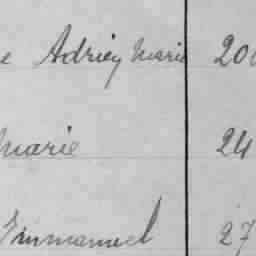 e Adrieg Marie 20
Marie 24
Emmanuel 27